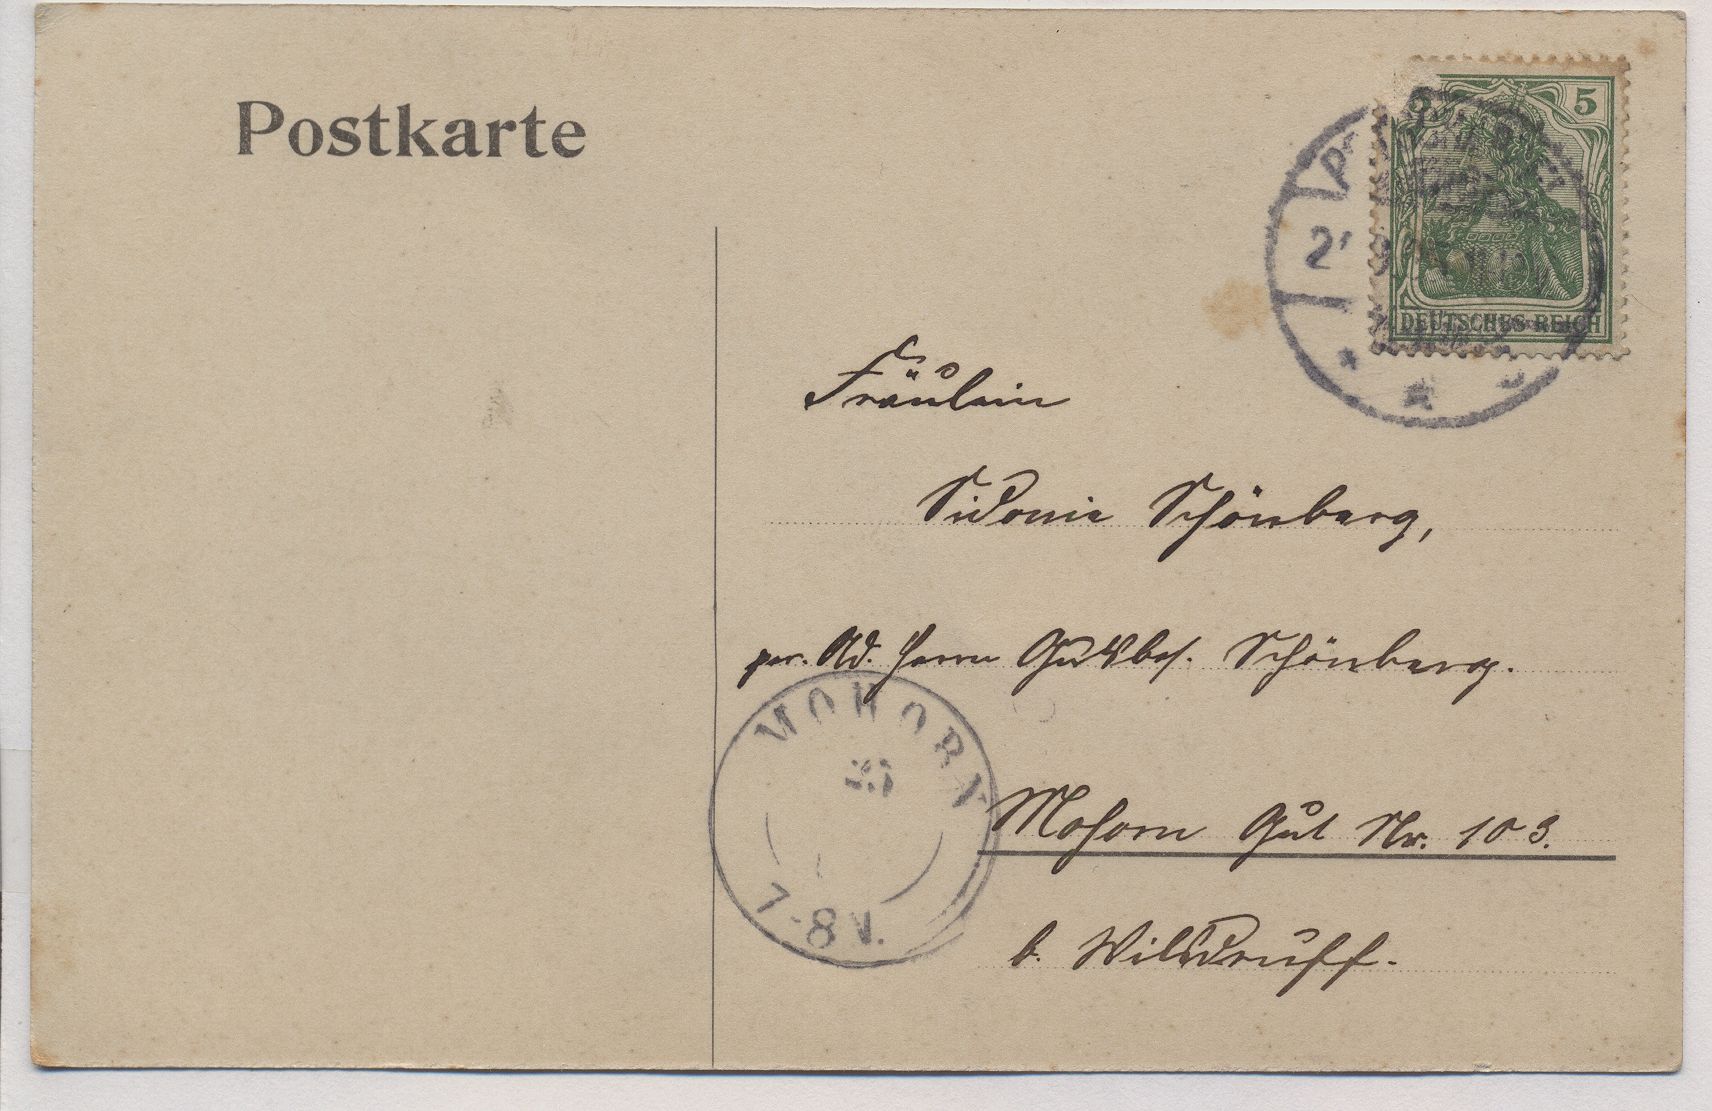 Postkarte
5 5
DEUTSCHES REICH
Fräulein
Sidonie Schönberg,
per. Ad. Herrn Gutsbes. Schönberg.
MOHORN
7-8 V.
Mohorn Gut Nr. 103.
b. Wilsdruff.